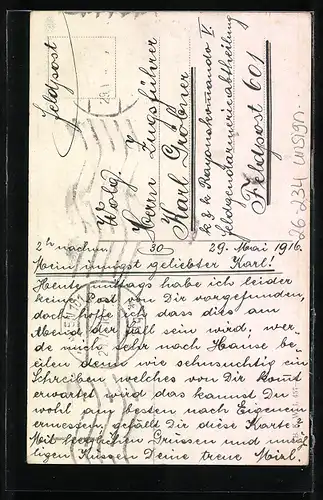 Feldpost
Wolg.
Herrn Zugsführer
Karl Gröbner
k. & k. Rayonskommando V.
Feldgendarmerieabtheilung
Feldpost 601
26-234 UNSIGN.
2h nachm. 30 29. Mai 1916.
Mein innigst geliebter Karl!
Heute mittags habe ich leider
keine Post von Dir vorgefunden,
doch hoffe ich dass dies am
Abend der Fall sein wird, wer-
de mich sehr nach Hause be-
eilen denn wie sehnsuchtig ein
Schreiben welches von Dir komt
erwartet wird das kannst Du
wohl am besten nach Eigenem
ermessen gefällt Dir diese Karte?
Mit herzlichen Grüssen und unzäh-
ligen Küssen Deine treue Mizl.